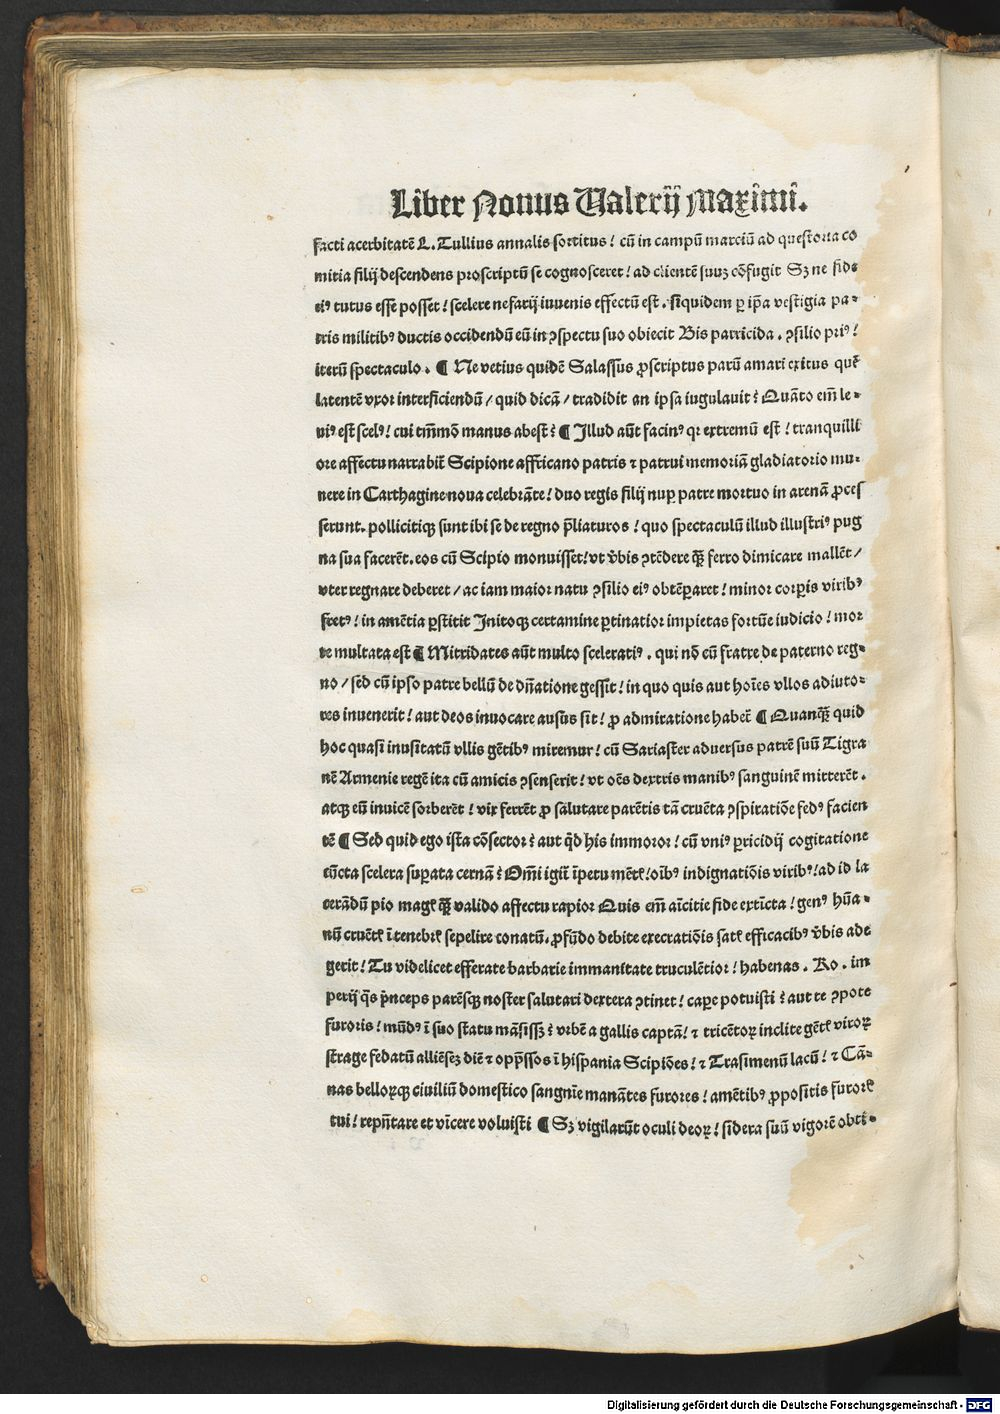 Liber Nonus Valerij Maximi.
facti acerbitatē L. Tullius annalis sortitus! cū in campū marciū ad questoria co
mitia filij descendens proscriptū se cognosceret! ad clientē suuꝫ cōfugit Sꝫ ne fide
ei⁹ tutus esse posset! scelere nefarij iuvenis effectū est. siquidem ꝑ ip̄a vestigia pa-
tris militib⁹ ductis occidendū eū in ꝯspectu suo obiecit Bis parricida. ꝯsilio pri⁹!
iterū spectaculo. ¶ Ne vetius quidē Salassus ꝓscriptus parū amari exitus quē
latentē vxor interficiendū / quid dicā / tradidit an ipsa iugulauit? Quāto em̄ le-
ui⁹ est scel⁹! cui tm̄mō manus abest? ¶ Illud aūt facin⁹ qꝛ extremū est! tranquilli
ore affectu narrabit̄ Scipione affricano patris ⁊ patrui memoriā gladiatorio mu-
nere in Carthagine noua celebrāte! duo regis filij nuꝑ patre mortuo in arenā ꝓces
serunt. pollicitiqꝫ sunt ibi se de regno p̄liaturos! quo spectaculū illud illustri⁹ pug
na sua facerēt. eos cū Scipio monuisset! vt v̄bis ꝯtēdere qꝫ̄ ferro dimicare mallēt /
vter regnare deberet / ac iam maior natu ꝯsilio ei⁹ obtēꝑaret! minor corꝑis virib⁹
fret⁹! in amētia ꝑstitit Initoqꝫ certamine ꝑtinatior impietas fortūe iudicio! mor
te multata est ¶ Mitridates aūt multo scelerati⁹. qui nō cū fratre de paterno reg-
no / sed cū ipso patre bellū de dn̄atione gessit! in quo quis aut hoīes vllos adiuto-
res invenerit! aut deos inuocare ausus sit! ꝓ admiratione habet̄ ¶ Quanqꝫ̄ quid
hoc quasi inusitatū vllis gētib⁹ miremur! cū Sariaster adversus patrē suū Tigra
nē Armenie regē ita cū amicis ꝯsenserit! vt oēs dextris manib⁹ sanguinē mitterēt.
atqꝫ eū invicē sorberēt! vix ferrēt ꝓ salutare parētis tā cruēta ꝯspiratiōe fed⁹ facien
tē ¶ Sed quid ego ista cōsector? aut qd̄ his immoror! cū vni⁹ ꝑricidij cogitatione
cūcta scelera suꝑata cernā? Om̄i igit̄ īpetu mētꝭ! oīb⁹ indignatiōis virib⁹! ad id la
cerādū pio magꝭ qꝫ̄ valido affectu rapior Quis em̄ aīcitie fide extīcta! gen⁹ hūa-
nū cruētꝭ ī tenebrꝭ sepelire conatū. ꝓfūdo debite execratiōis satꝭ efficacib⁹ v̄bis ade
gerit! Tu videlicet efferate barbarie immanitate truculētior! habenas. Ro. im
perij qs̄ p̄nceps parēsqꝫ noster salutari dextera ꝯtinet! caꝑe potuisti? aut te ꝯpote
furoris! mūd⁹ ī suo statu māsissꝫ? vrbē a gallis captā! ⁊ tricētoꝝ inclite gētꝭ viroꝝ
strage fedatū alliēseꝫ diē ⁊ opp̄ssos ī hispania Scipiōes! ⁊ Trasimenū lacū! ⁊ Cā-
nas belloꝝqꝫ civiliū domestico sangnīe manātes furores! amētib⁹ ꝓpositis furorꝭ
tui! repn̄tare et vīcere voluisti ¶ Sꝫ vigilarūt oculi deoꝝ! sidera suū vigorē obti-
Digitalisierung gefördert durch die Deutsche Forschungsgemeinschaft - DFG